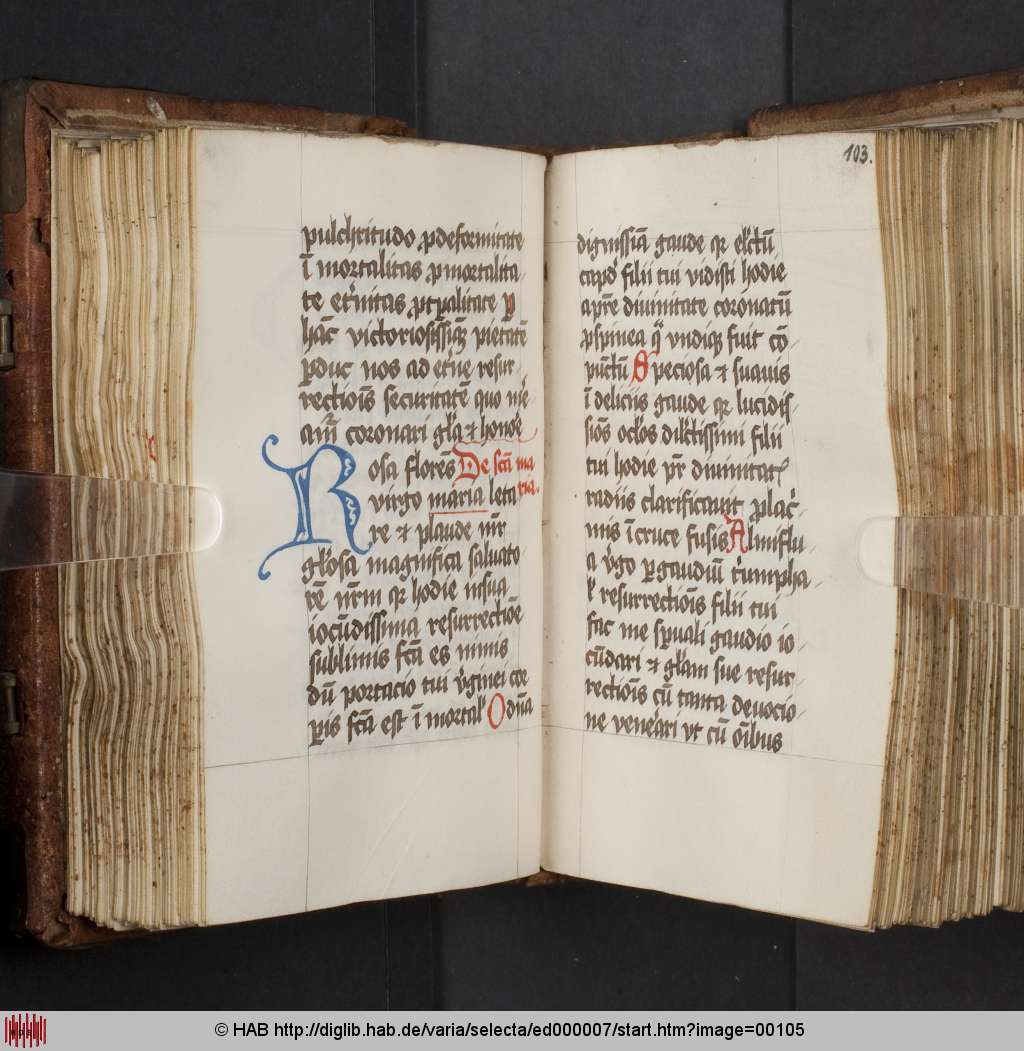 pulchritudo ꝓdeformitate
ī mortalitas ꝓmortalita
te et̓nitas ꝓtꝑalitate ꝑ
hāc victoriosissimā pietatē
ꝑduc nos ad et̓ne resur
rectiōis securitatē quo me
am̄ coronari gl̓a ⁊ hono̓e
Rosa florēs De scā ma
virgo maria leta ria.
re ⁊ plaude mr̄
gl̓osa magnifica saluato
rē nr̄m qr hodie insua
iocūdissima resurrectiōe
sublimis fcā es nimis
dū portacio tui v̓ginei cor
ꝑis fcā est ī mortal̓ O dn̄a
103.
dignissīa gaude qr elc̄tū
capd̓ filii tui vidisti hodie
apr̄e diuinitate coronatū
ꝓspinea q̄ vndiqꝫ fuit cō
pūctū Speciosa ⁊ suauis
ī deliciis gaude qr lucidis
siōs oc̓los dilc̄tissimi filii
tui hodie pr̄ diuinitatꝭ
radiis clarificauit ꝓlac̓
mis īcruce fusis Almiflu
a v̓go ꝑgaudiū t̓umpha
l̓ resurrectiōis filii tui
fac me spūali gaudio io
cūdari ⁊ gl̓am sue resur
rectiōis cū tanta deuocio
ne vene̓ari vt cū oībus
© HAB http://diglib.hab.de/varia/selecta/ed000007/start.htm?image=00105